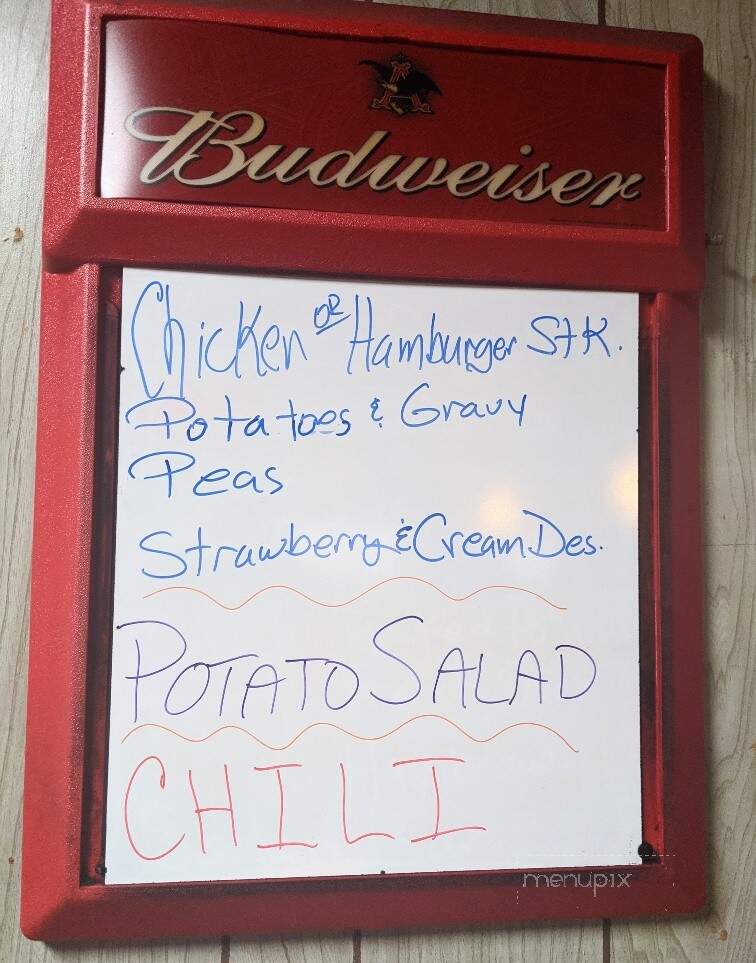 Budweiser
Chicken OR Hamburger Stk.
Potatoes & Gravy
Peas
Strawberry & Cream Des.
POTATO SALAD
CHILI
menupix